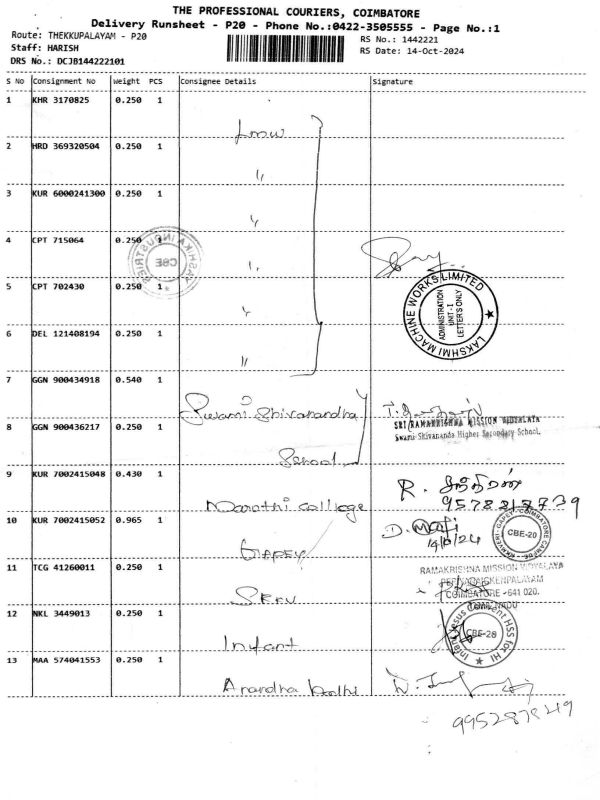 THE PROFESSIONAL COURIERS, COIMBATORE
Delivery Runsheet - P20 - Phone No.:0422-3505555 - Page No.:1
Route: THEKKUPALAYAM - P20
RS No.: 1442221
Staff: HARISH
RS Date: 14-Oct-2024
DRS No.: DCJB144222101
S No Consignment No Weight PCS Consignee Details Signature
1 KHR 3170825 0.250 1
2 HRD 369320504 0.250 1
3 KUR 6000241300 0.250 1
4 CPT 715064 0.250 1
5 CPT 702430 0.250 1
LAKSHMI MACHINE WORKS LIMITED
ADMINISTRATION
UNIT - I
LETTER'S ONLY
6 DEL 121408194 0.250 1
7 GGN 900434918 0.540 1
Swami Shivanandha
SRI RAMAKRISHNA MISSION VIDYALAYA
Swami Shivananda Higher Secondary School.
8 GGN 900436217 0.250 1
School
9 KUR 7002415048 0.430 1
Marathi college
R.
9578217739
10 KUR 7002415052 0.965 1
D. Mani
14/10/24
CBE-20
11 TCG 41260011 0.250 1
RAMAKRISHNA MISSION VIDYALAYA
PERIYANAICKENPALAYAM
COIMBATORE - 641 020.
TAMIL NADU
12 NKL 3449013 0.250 1
Infant
Infant Jesus Convent HSS for
CBE-28
13 MAA 574041553 0.250 1
Anandha bodhi
9952878249